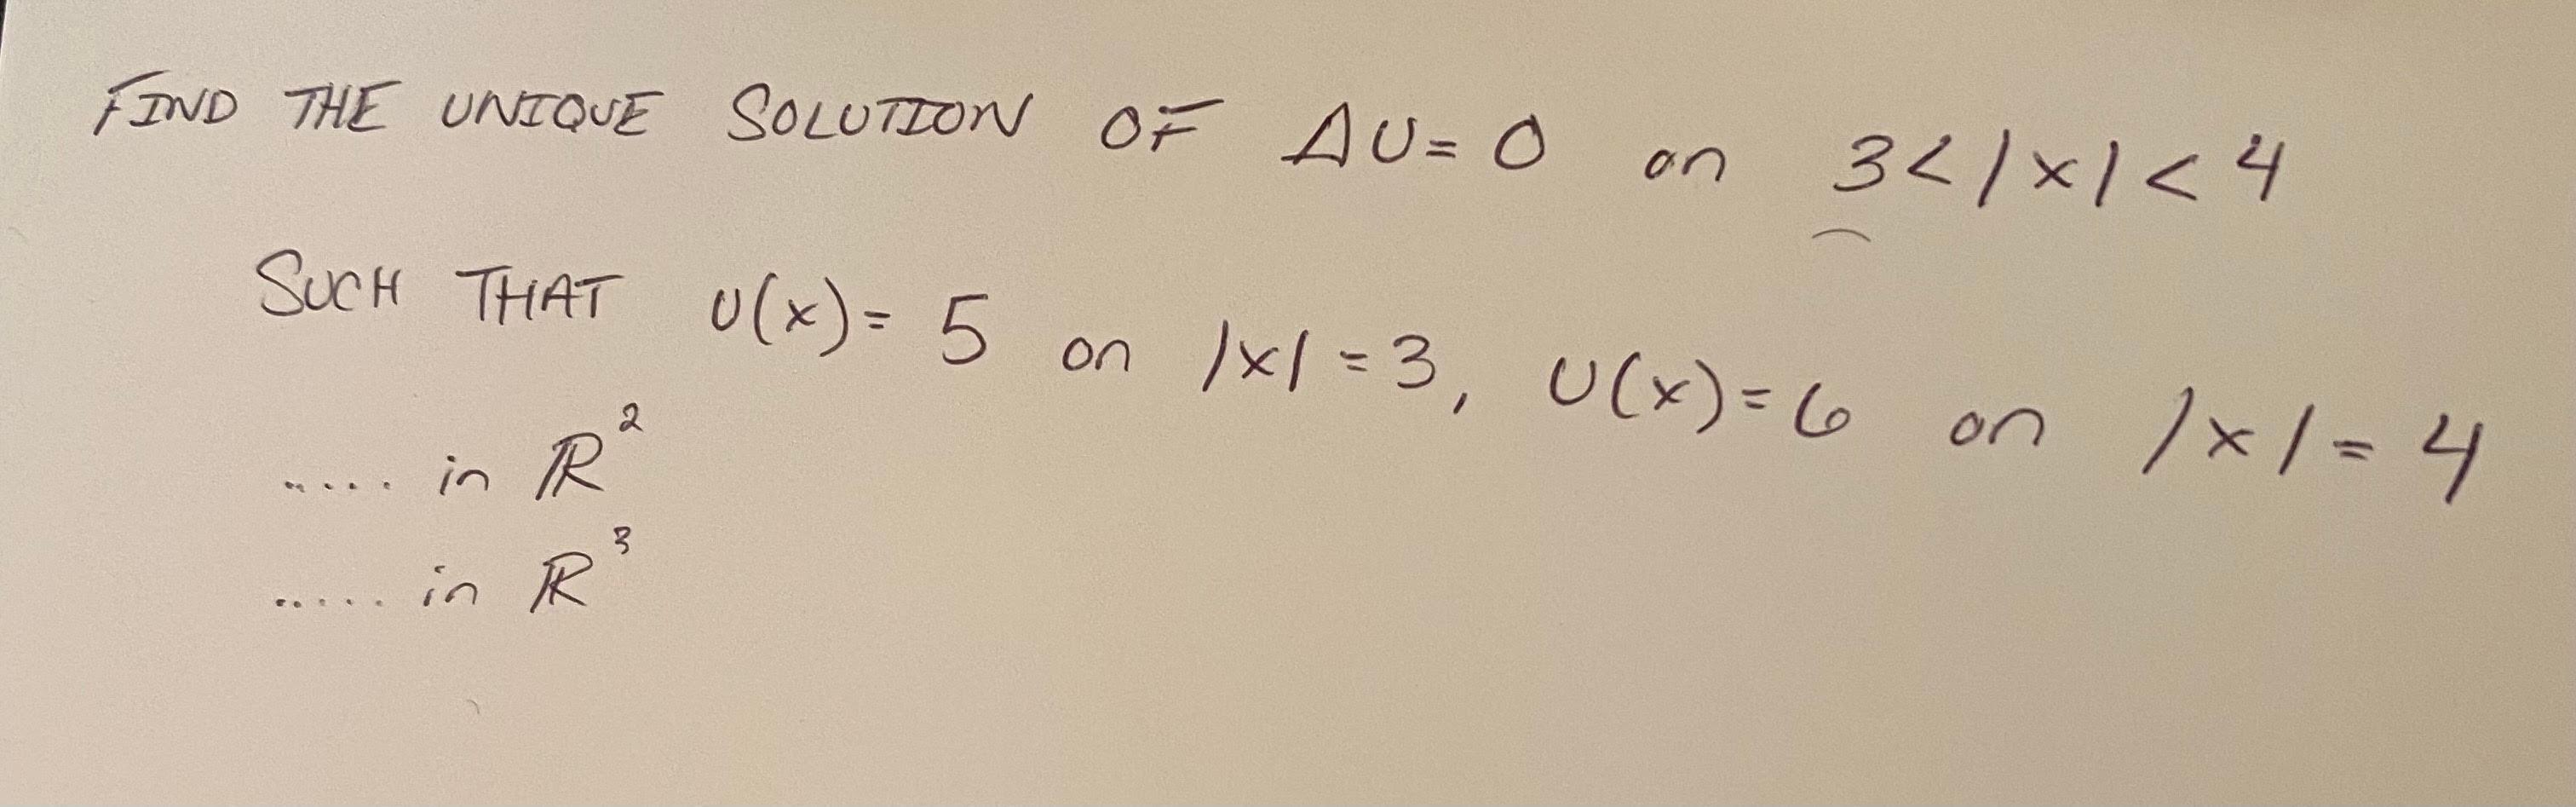 FIND THE UNIQUE SOLUTION OF ΔU=0 on 3<|x|<4
SUCH THAT U(x)=5 on |x|=3, U(x)=6 on |x|=4
..... in ℝ²
..... in ℝ³